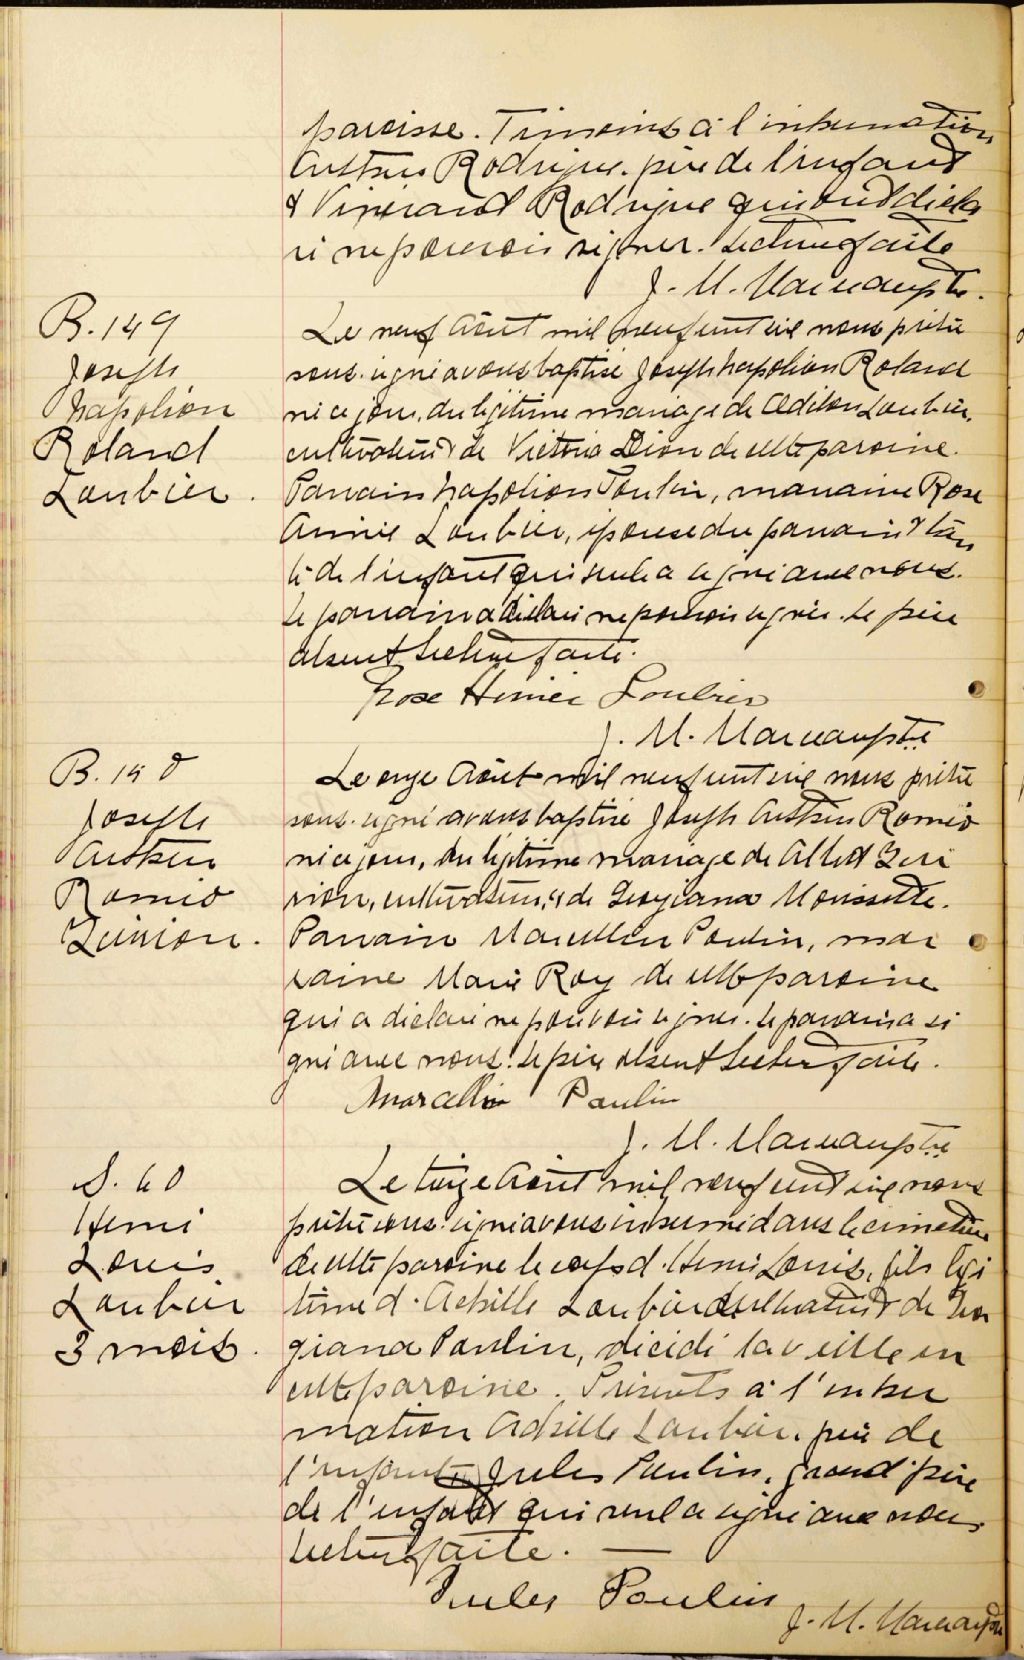 paroisse. Témoins à l'inhumation
Rodrigue père de l'enfant
& Vénérand Rodrigue qui ont décla
ré ne pouvoir signer. Lecture faite
J. M. Marceau ptre.
B. 149
Joseph
Napoléon
Roland
Loubier.
Le neuf Août mil neuf cent six nous prêtre
sous-signé avons baptisé Joseph Napoléon Roland
né ce jour, du légitime mariage de Odilon Loubier,
cultivateur & de Victoria Dion de cette paroisse.
Parrain Napoléon Poulin, marraine Rose
Annie Loubier, épouse du parrain & tan
te de l'enfant qui seule a signé avec nous.
Le parrain a déclaré ne pouvoir signer. Le père
absent Lecture faite.
Rose Loubier
J. M. Marceau ptre
B. 150
Joseph
Roméo
Le onze Août mil neuf cent six nous prêtre
sous-signé avons baptisé Joseph Roméo
né ce jour, du légitime mariage de Albert
cultivateur, & de Georgiana Morissette.
Parrain Marcellin Poulin, mar
raine Marie Roy de cette paroisse
qui a déclaré ne pouvoir signer. Le parrain a si
gné avec nous. Le père absent Lecture faite.
Marcellin Poulin
J. M. Marceau ptre
S. 60
Henri
Louis
Loubier
3 mois.
Le treize Août mil neuf cent six nous
prêtre sous-signé avons inhumé dans le cimetière
de cette paroisse le corps d'Henri Louis, fils légi
time d'Achille Loubier cultivateur & de Geor
giana Poulin, décédé la veille en
cette paroisse. Présents à l'inhu
mation Achille Loubier père de
l'enfant Jules Poulin, grand-père
de l'enfant qui seul a signé avec nous
Lecture faite.
Jules Poulin
J. M. Marceau ptre